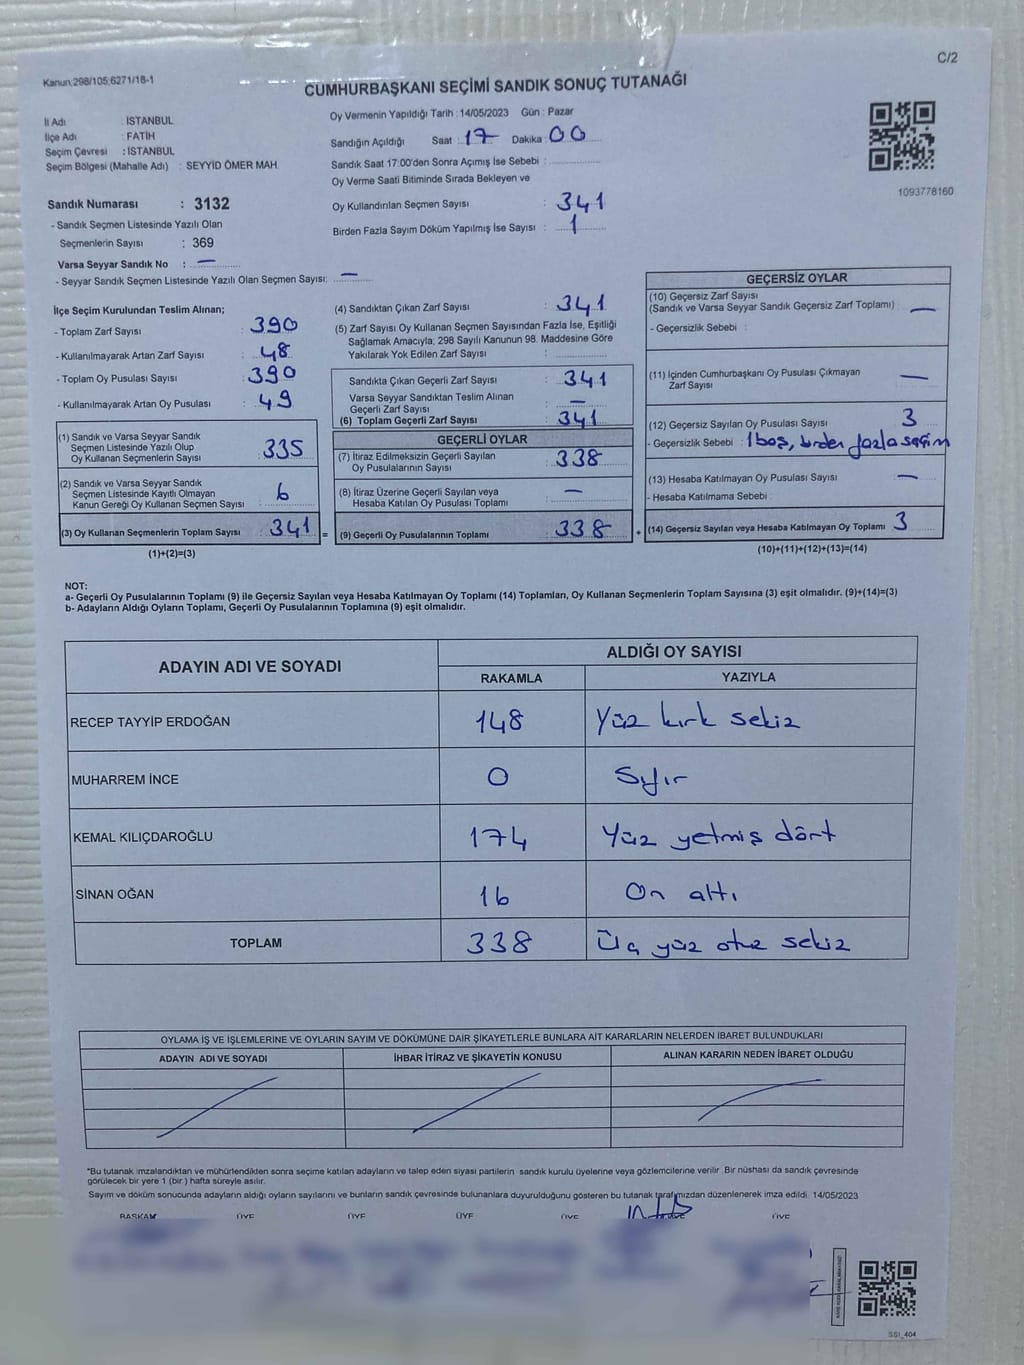 C/2
Kanun:298/105;6271/18-1
CUMHURBAŞKANI SEÇİMİ SANDIK SONUÇ TUTANAĞI
İl Adı : İSTANBUL
İlçe Adı : FATİH
Seçim Çevresi : İSTANBUL
Seçim Bölgesi (Mahalle Adı) : SEYYİD ÖMER MAH.
Sandık Numarası : 3132
- Sandık Seçmen Listesinde Yazılı Olan
Seçmenlerin Sayısı : 369
Varsa Seyyar Sandık No : —
- Seyyar Sandık Seçmen Listesinde Yazılı Olan Seçmen Sayısı: —
Oy Vermenin Yapıldığı Tarih : 14/05/2023 Gün : Pazar
Sandığın Açıldığı Saat : 17 Dakika : 00
Sandık Saat 17:00'den Sonra Açımış İse Sebebi :
Oy Verme Saati Bitiminde Sırada Bekleyen ve
Oy Kullandırılan Seçmen Sayısı : 341
Birden Fazla Sayım Döküm Yapılmış İse Sayısı : 1
1093778160
İlçe Seçim Kurulundan Teslim Alınan;
- Toplam Zarf Sayısı : 390
- Kullanılmayarak Artan Zarf Sayısı : 48
- Toplam Oy Pusulası Sayısı : 390
- Kullanılmayarak Artan Oy Pusulası : 49
(1) Sandık ve Varsa Seyyar Sandık
Seçmen Listesinde Yazılı Olup
Oy Kullanan Seçmenlerin Sayısı : 335
(2) Sandık ve Varsa Seyyar Sandık
Seçmen Listesinde Kayıtlı Olmayan
Kanun Gereği Oy Kullanan Seçmen Sayısı : 6
(3) Oy Kullanan Seçmenlerin Toplam Sayısı : 341
(1)+(2)=(3)
(4) Sandıktan Çıkan Zarf Sayısı : 341
(5) Zarf Sayısı Oy Kullanan Seçmen Sayısından Fazla İse, Eşitliği
Sağlamak Amacıyla; 298 Sayılı Kanunun 98. Maddesine Göre
Yakılarak Yok Edilen Zarf Sayısı :
Sandıkta Çıkan Geçerli Zarf Sayısı : 341
Varsa Seyyar Sandıktan Teslim Alınan
Geçerli Zarf Sayısı : —
(6) Toplam Geçerli Zarf Sayısı : 341
GEÇERLİ OYLAR
(7) İtiraz Edilmeksizin Geçerli Sayılan
Oy Pusulalarının Sayısı : 338
(8) İtiraz Üzerine Geçerli Sayılan veya
Hesaba Katılan Oy Pusulası Toplamı : —
= (9) Geçerli Oy Pusulalarının Toplamı : 338
GEÇERSİZ OYLAR
(10) Geçersiz Zarf Sayısı
(Sandık ve Varsa Seyyar Sandık Geçersiz Zarf Toplamı) : —
- Geçersizlik Sebebi :
(11) İçinden Cumhurbaşkanı Oy Pusulası Çıkmayan
Zarf Sayısı : —
(12) Geçersiz Sayılan Oy Pusulası Sayısı : 3
- Geçersizlik Sebebi : 1 boş, birden fazla seçim
(13) Hesaba Katılmayan Oy Pusulası Sayısı : —
- Hesaba Katılmama Sebebi :
+ (14) Geçersiz Sayılan veya Hesaba Katılmayan Oy Toplamı : 3
(10)+(11)+(12)+(13)=(14)
NOT:
a- Geçerli Oy Pusulalarının Toplamı (9) ile Geçersiz Sayılan veya Hesaba Katılmayan Oy Toplamı (14) Toplamları, Oy Kullanan Seçmenlerin Toplam Sayısına (3) eşit olmalıdır. (9)+(14)=(3)
b- Adayların Aldığı Oyların Toplamı, Geçerli Oy Pusulalarının Toplamına (9) eşit olmalıdır.
ADAYIN ADI VE SOYADI
ALDIĞI OY SAYISI
RAKAMLA YAZIYLA
RECEP TAYYİP ERDOĞAN 148 Yüz kırk sekiz
MUHARREM İNCE 0 Sıfır
KEMAL KILIÇDAROĞLU 174 Yüz yetmiş dört
SİNAN OĞAN 16 On altı
TOPLAM 338 Üç yüz otuz sekiz
OYLAMA İŞ VE İŞLEMLERİNE VE OYLARIN SAYIM VE DÖKÜMÜNE DAİR ŞİKAYETLERLE BUNLARA AİT KARARLARIN NELERDEN İBARET BULUNDUKLARI
ADAYIN ADI VE SOYADI İHBAR İTİRAZ VE ŞİKAYETİN KONUSU ALINAN KARARIN NEDEN İBARET OLDUĞU
*Bu tutanak imzalandıktan ve mühürlendikten sonra seçime katılan adayların ve talep eden siyasi partilerin sandık kurulu üyelerine veya gözlemcilerine verilir. Bir nüshası da sandık çevresinde
görülecek bir yere 1 (bir) hafta süreyle asılır.
Sayım ve döküm sonucunda adayların aldığı oyların sayılarını ve bunların sandık çevresinde bulunanlara duyurulduğunu gösteren bu tutanak tarafımızdan düzenlenerek imza edildi. 14/05/2023
BAŞKAN ÜYE ÜYE ÜYE ÜYE ÜYE ÜYE
SSI_404